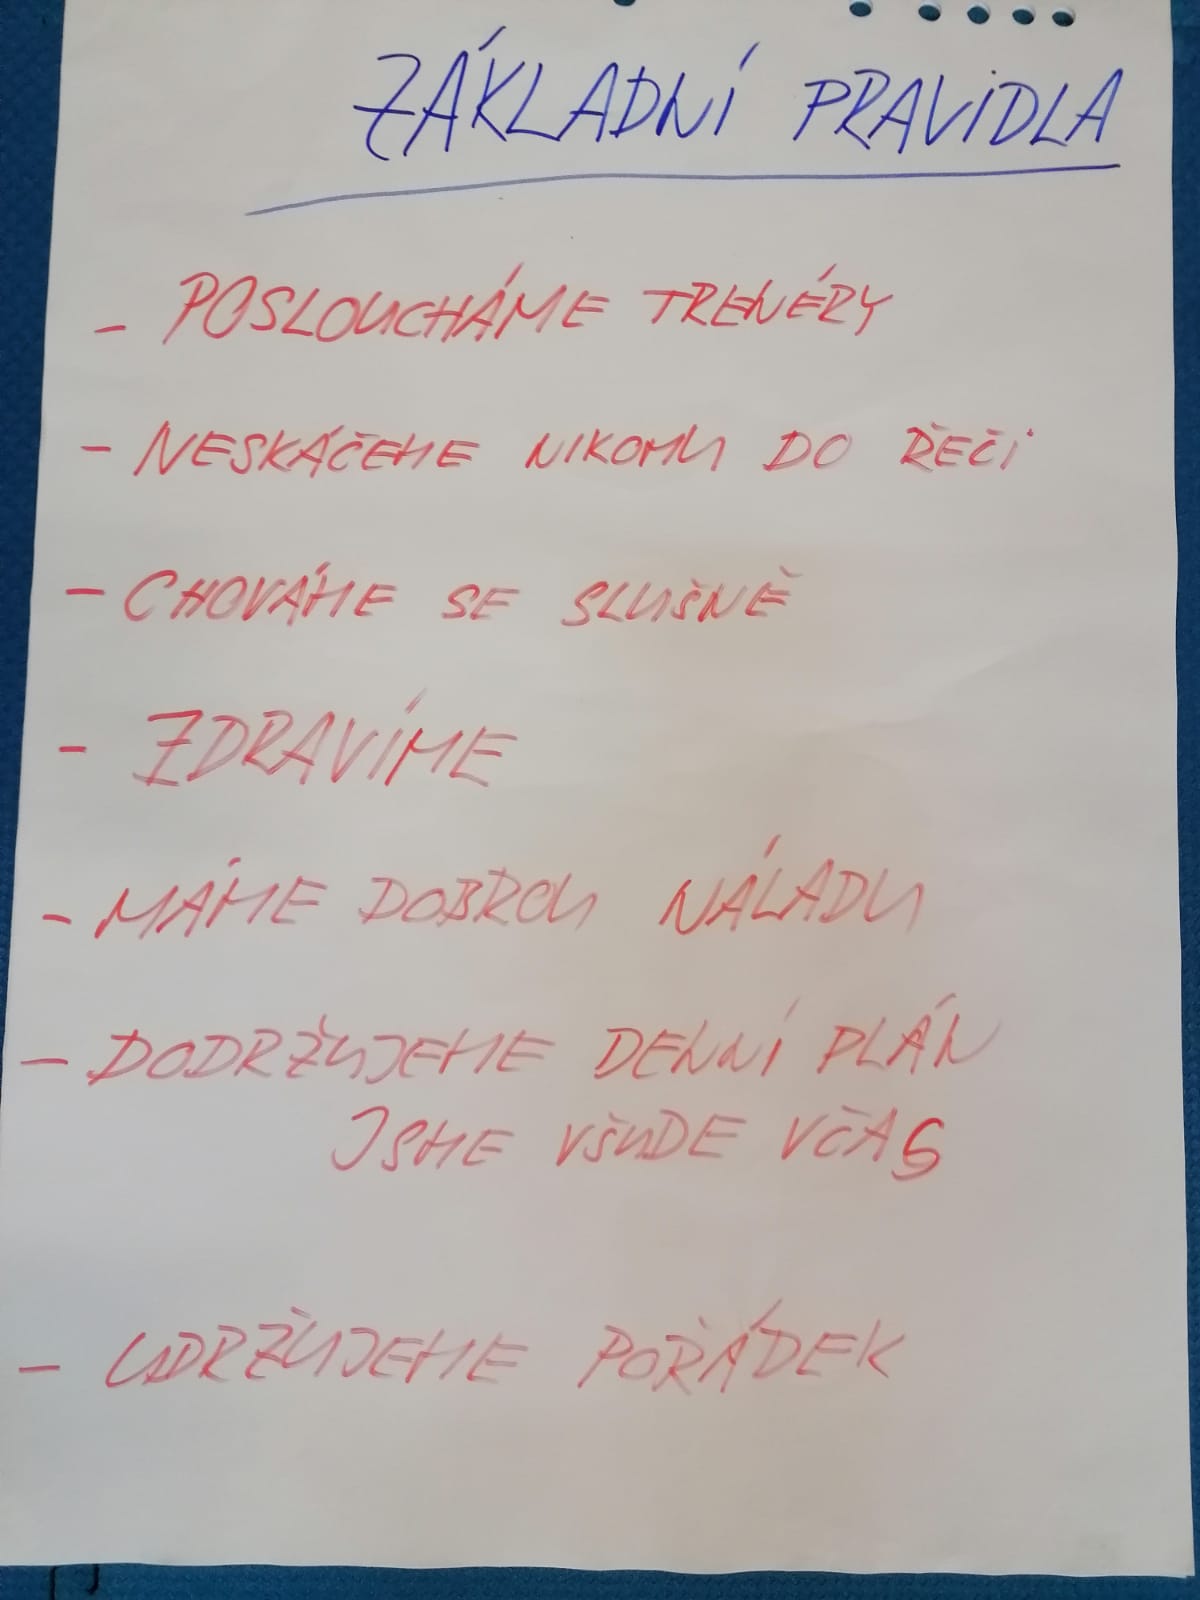 ZÁKLADNÍ PRAVIDLA
- POSLOUCHÁME TRENÉRY
- NESKÁČEME NIKOMU DO ŘEČI
- CHOVÁME SE SLUŠNĚ
- ZDRAVÍME
- MÁME DOBROU NÁLADU
- DODRŽUJEME DENNÍ PLÁN
JSME VŠUDE VČAS
- UDRŽUJEME POŘÁDEK